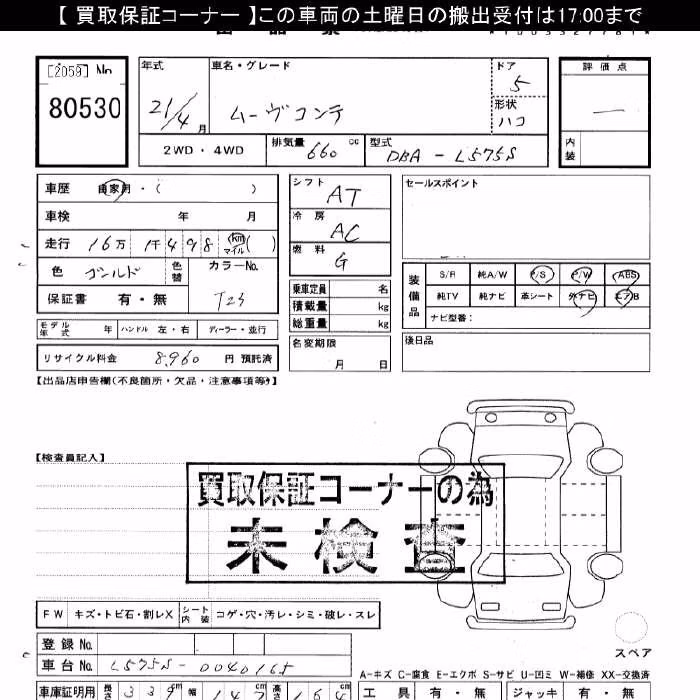 【 買取保証コーナー 】この車両の土曜日の搬出受付は17:00まで
[2059] No
80530
年式
21/4 月
車名・グレード
ムーヴコンテ
ドア
5
形状
ハコ
評価点
―
内装
2WD・4WD
排気量 660 cc
型式 DBA - L575S
車歴 自家用・( )
車検 年 月
走行 16万 1千498 km マイル ( )
色 ゴールド 色替
カラーNo. T23
保証書 有・無
モデル年式 年 ハンドル 左・右 ディーラー・並行
リサイクル料金 8,960 円 預託済
シフト AT
冷房 AC
燃料 G
乗車定員 名
積載量 kg
総重量 kg
名変期限
月 日
セールスポイント
装備品
S/R 純A/W P/S P/W ABS
純TV 純ナビ 革シート 外ナビ エアB
ナビ型番:
後日品
【出品店申告欄(不良箇所・欠品・注意事項等)】
【検査員記入】
買取保証コーナーの為
未検査
FW キズ・トビ石・割レX シート内装 コゲ・穴・汚レ・シミ・破レ・スレ
スペア
登録 No.
車台 No. L575S-0040165
A-キズ C-腐食 E-エクボ S-サビ U-凹ミ W-補修 XX-交換済
車庫証明用 長さ 339 幅 147 高さ 164
工具 有・無 ジャッキ 有・無